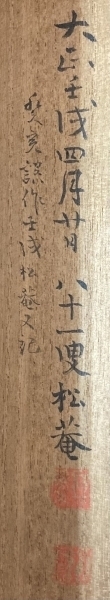 大正壬戌四月廿日 八十一叟 松菴
癸亥誤作壬戌 松菴又記